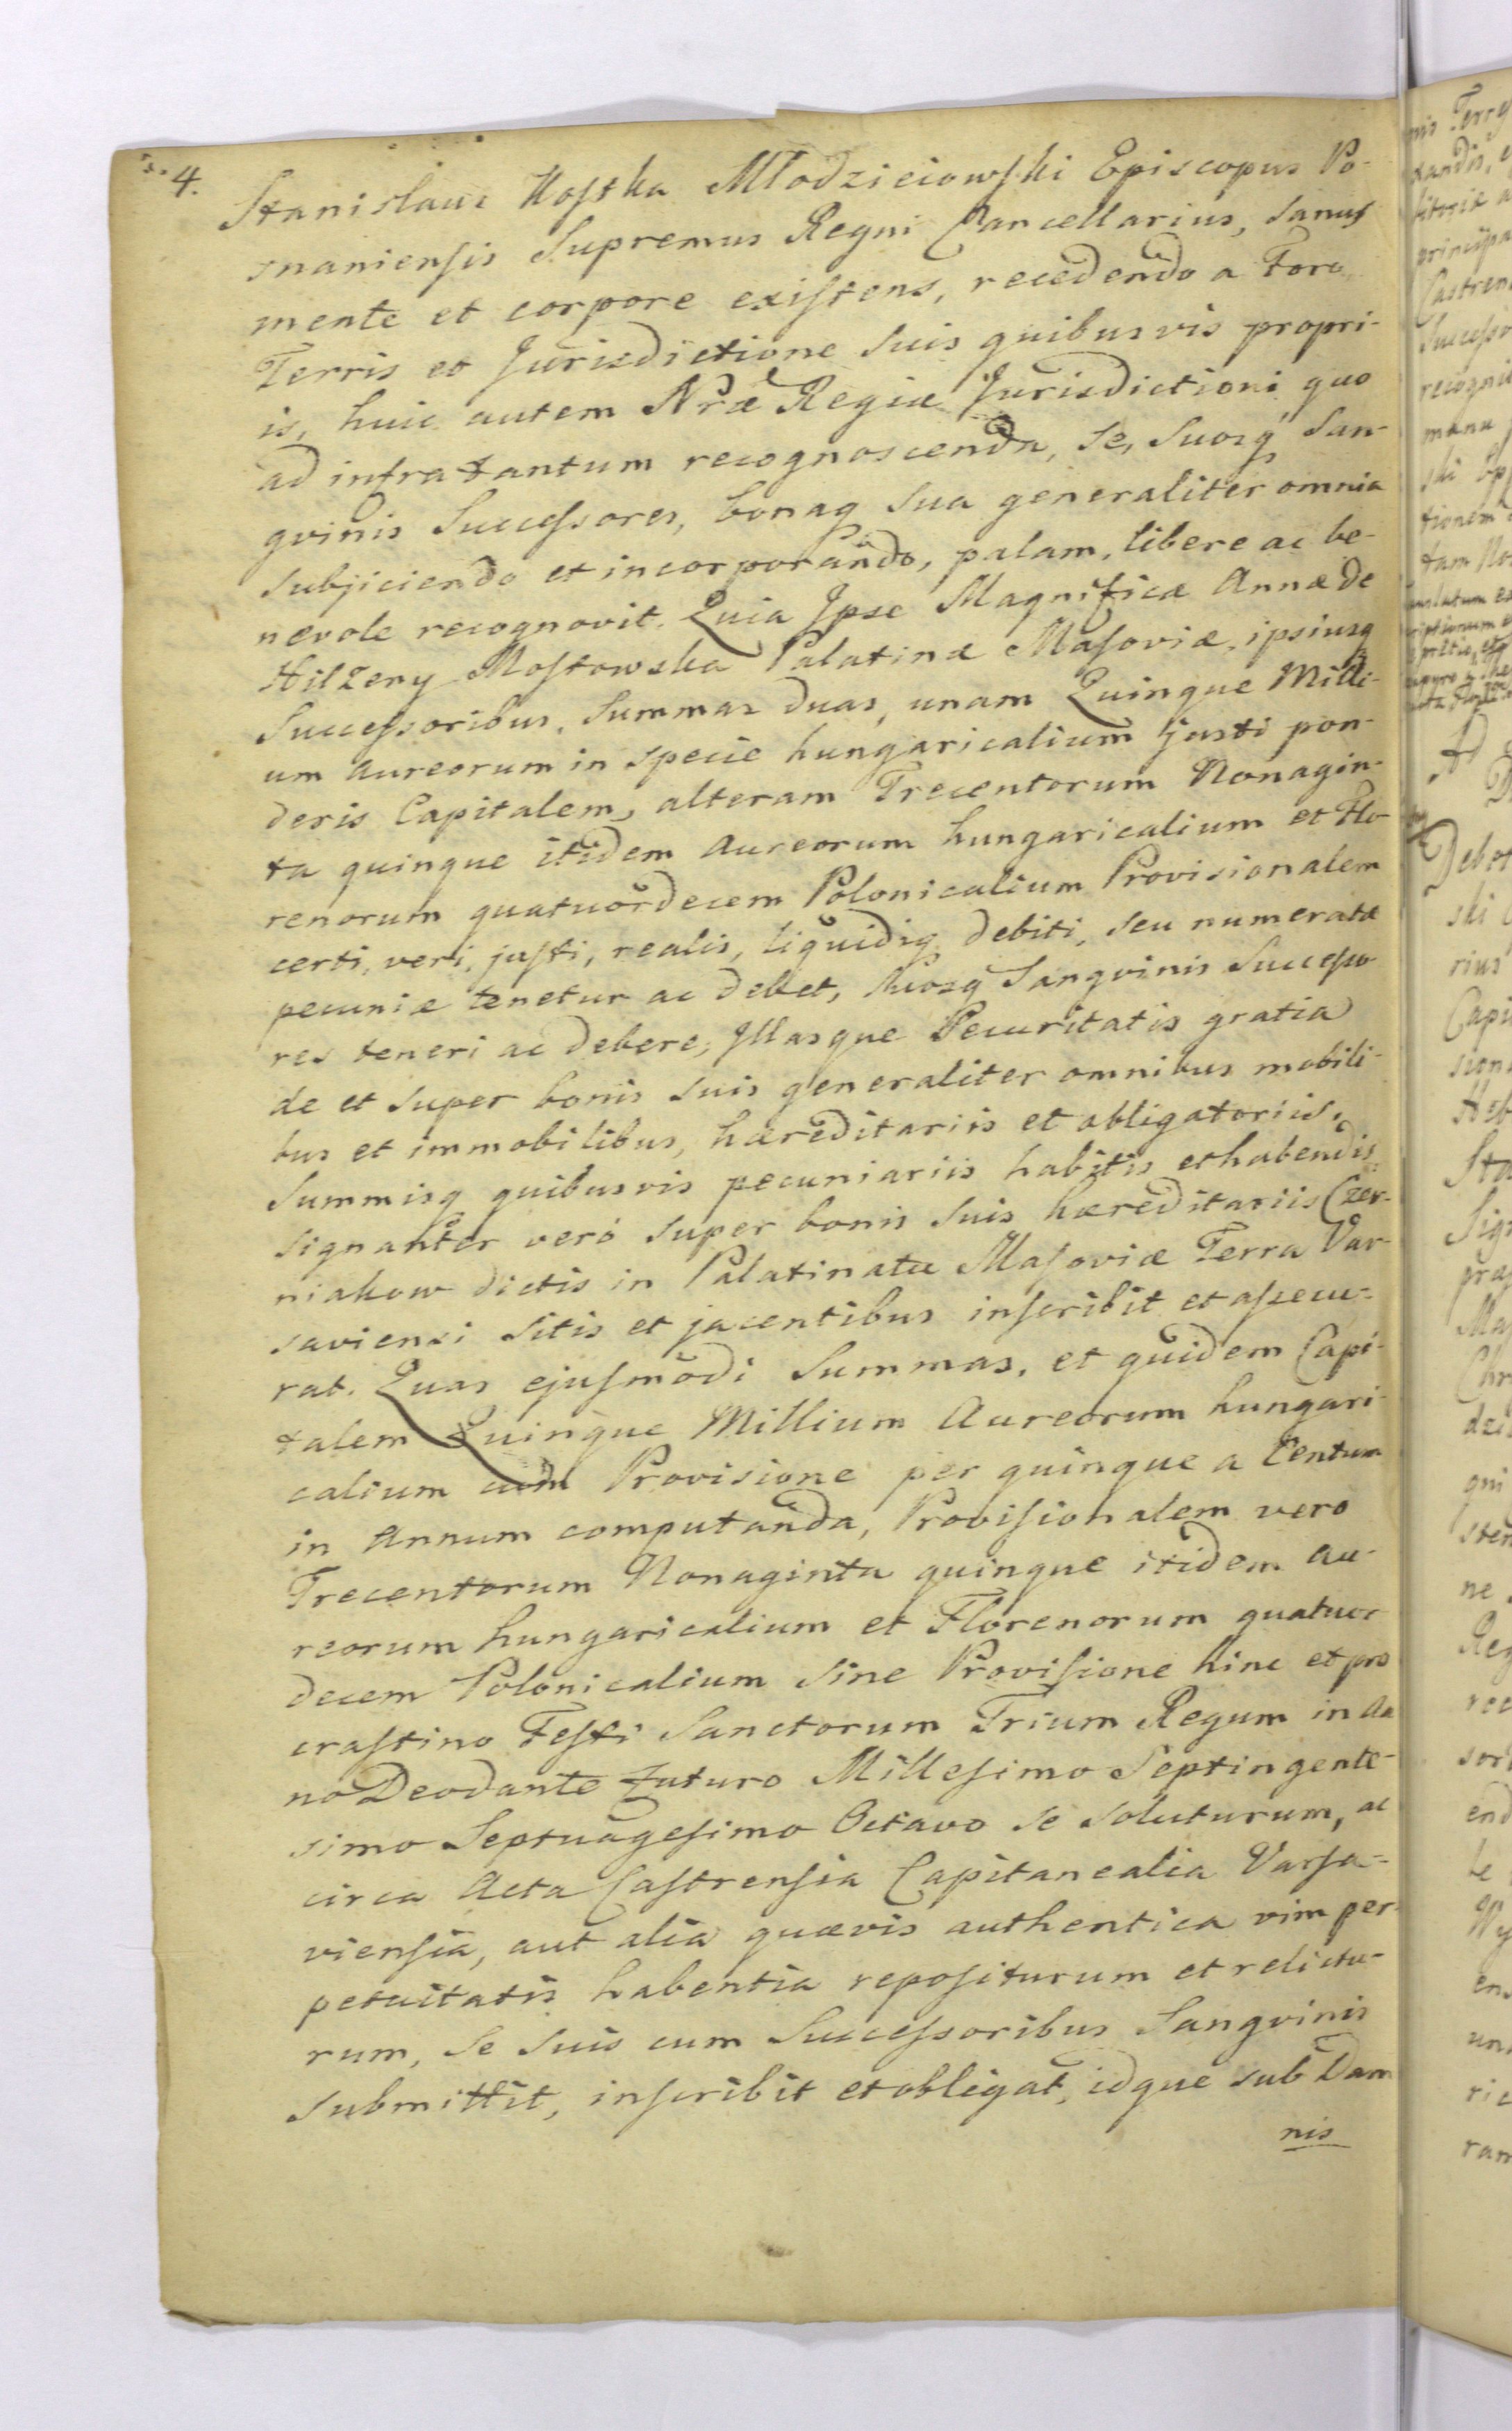 4.
Stanislaus Kostka Młodzieiowski Episcopus Po-
snaniensis Supremus Regni Cancellarius, sanus
mente et corpore existens, recedendo a Foro
Terris et Jurisdictione suis quibusvis propri-
is, huic autem Nræ Regiæ Jurisdictioni quo
ad infra tantum recognoscenda, se, suosq̃ San-
gvinis Successores, bonaq sua generaliter omnia
subjiciendo et incorporando, palam, libere ac be-
nevole recognovit. Quia Ipse Magnificæ Annæ de
Hilzeny Mostowska Palatinæ Masoviæ, ipsiusq
Successoribus, Summas duas, unam Quinque Milli-
um aureorum in specie hungaricalium justi pon-
deris Capitalem, alteram Trecentorum Nonagin-
ta quinque itidem Aureorum hungaricalium et Flo-
renorum quatuordecem Polonicalium Provisionalem
certi, veri, justi, realis, liquidiq debiti, seu numeratæ
pecuniæ tenetur ac debet, suosq̃ Sangvinis Successo-
res teneri ac debere, Illasque Securitatis gratia
de et super bonis suis generaliter omnibus mobili-
bus et immobilibus, hæreditariis et obligatoriis,
Summisq quibusvis pecuniariis habitis et habendis
signanter veró super bonis suis hæreditariis Czer-
niakow dictis in Palatinatu Masoviæ Terra Var-
saviensi sitis et jacentibus inscribit et assecu-
rat. Quas ejusmodi Summas, et quidem Capi-
talem Quinque Millium Aureorum hungari-
calium cum Provisione per quinque a Centum
in Annum computanda, Provisionalem vero
Trecentorum Nonaginta quinque itidem Au-
reorum hungaricalium et Florenorum quatuor
decem Polonicalium sine Provisione hinc et pro
crastino Festi Sanctorum Trium Regum in An
no Deodante futuro Millesimo Septingente-
simo Septuagesimo Octavo se soluturum, ac
circa Acta Castrensia Capitanealia Varsa-
viensia, aut alia quævis authentica vim per-
petuitatis habentia repositurum et relictu-
rum, se suis cum Successoribus Sangvinis
submittit, inscribit et obligat, idque sub Dam
nis